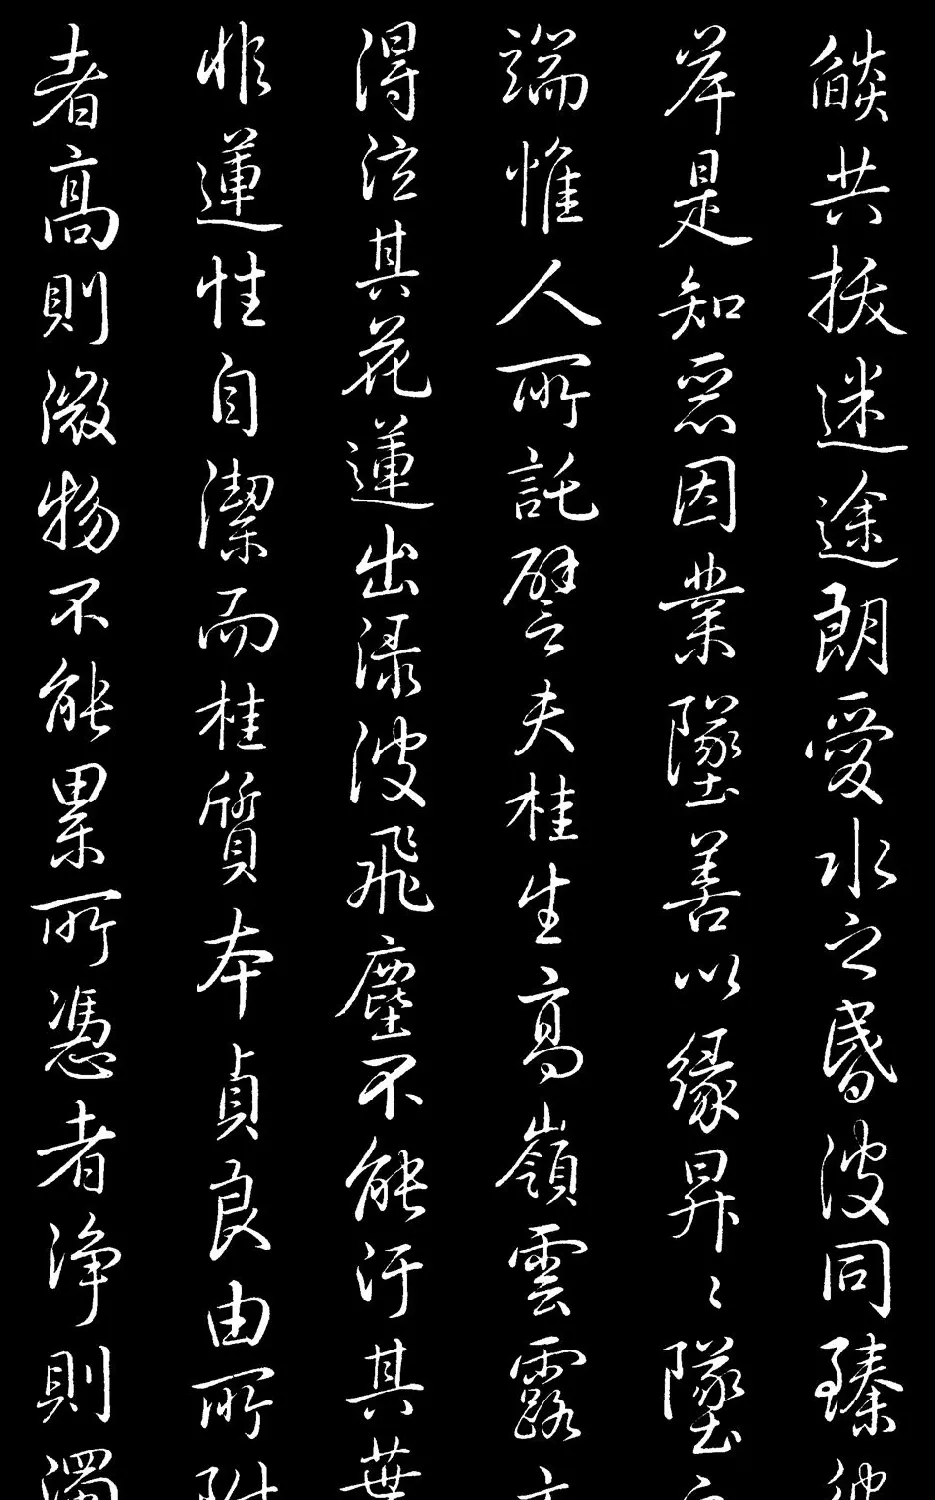 燄共拔迷途朗愛水之昏波同臻彼
岸是知惡因業墜善以緣昇〻墜之
端惟人所託譬夫桂生高嶺雲露方
得泫其花蓮出淥波飛塵不能汙其葉
非蓮性自潔而桂質本貞良由所附
者高則微物不能累所憑者淨則濁